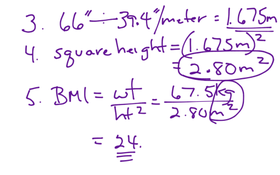 3. 66" ÷ 39.4"/meter = 1.675m
4. square height = (1.675m)²
= 2.80m²
5. BMI = wt/ht² = 67.5kg/2.80m²
= 24.